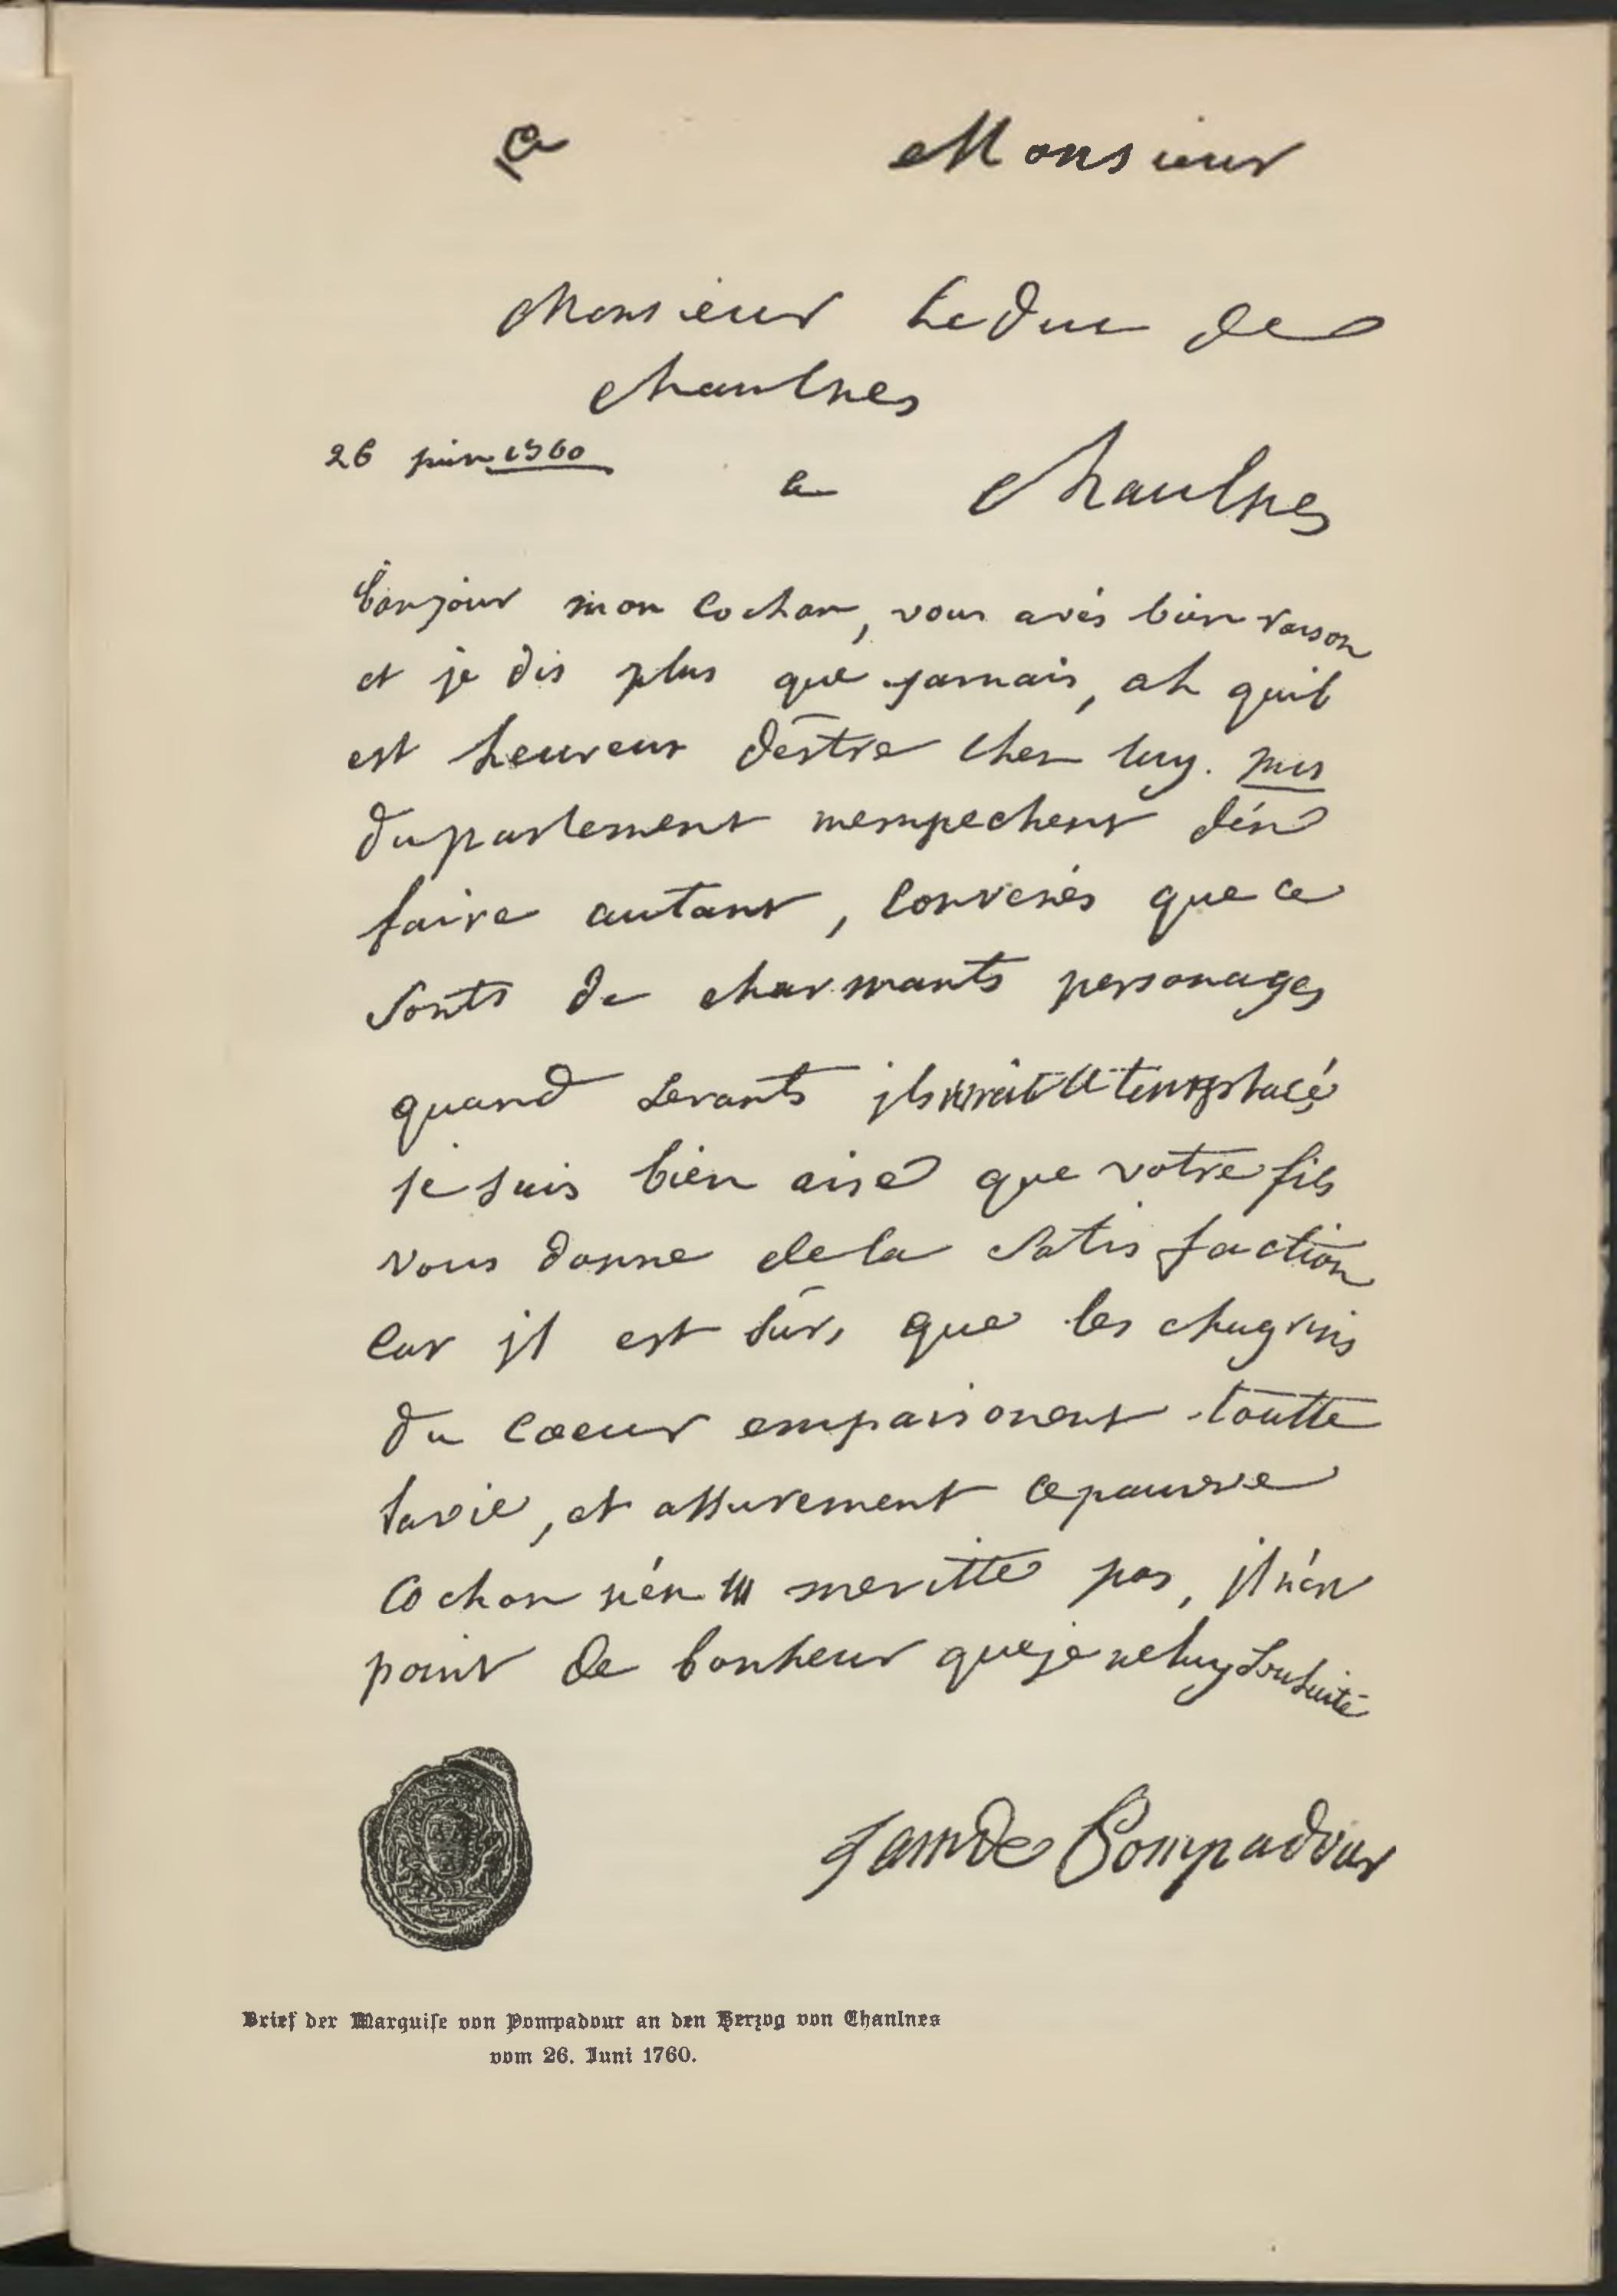 a Monsieur
Monsieur Le duc de
chaulnes
26 juin 1760
a chaulnes
bonjour mon cochon, vous avés bien raison
et je dis plus que jamais, ah quil
est heureux déstre chez luy. mrs
du parlement mempechent dén
faire autant, convenés que ce
sonts de charmants personages
quand
je suis bien aise que votre fils
vous donne de la satisfaction
car jl est sûr, que les chagrins
du coeur empoisonent toutte
la vie, et assurement ce pauvre
cochon nén meritte pas, jl nén
point de bonheur que je ne luy souhaite
de Pompadour
Brief der Marquise von Pompadour an den Herzog von Chaulnes
vom 26. Juni 1760.